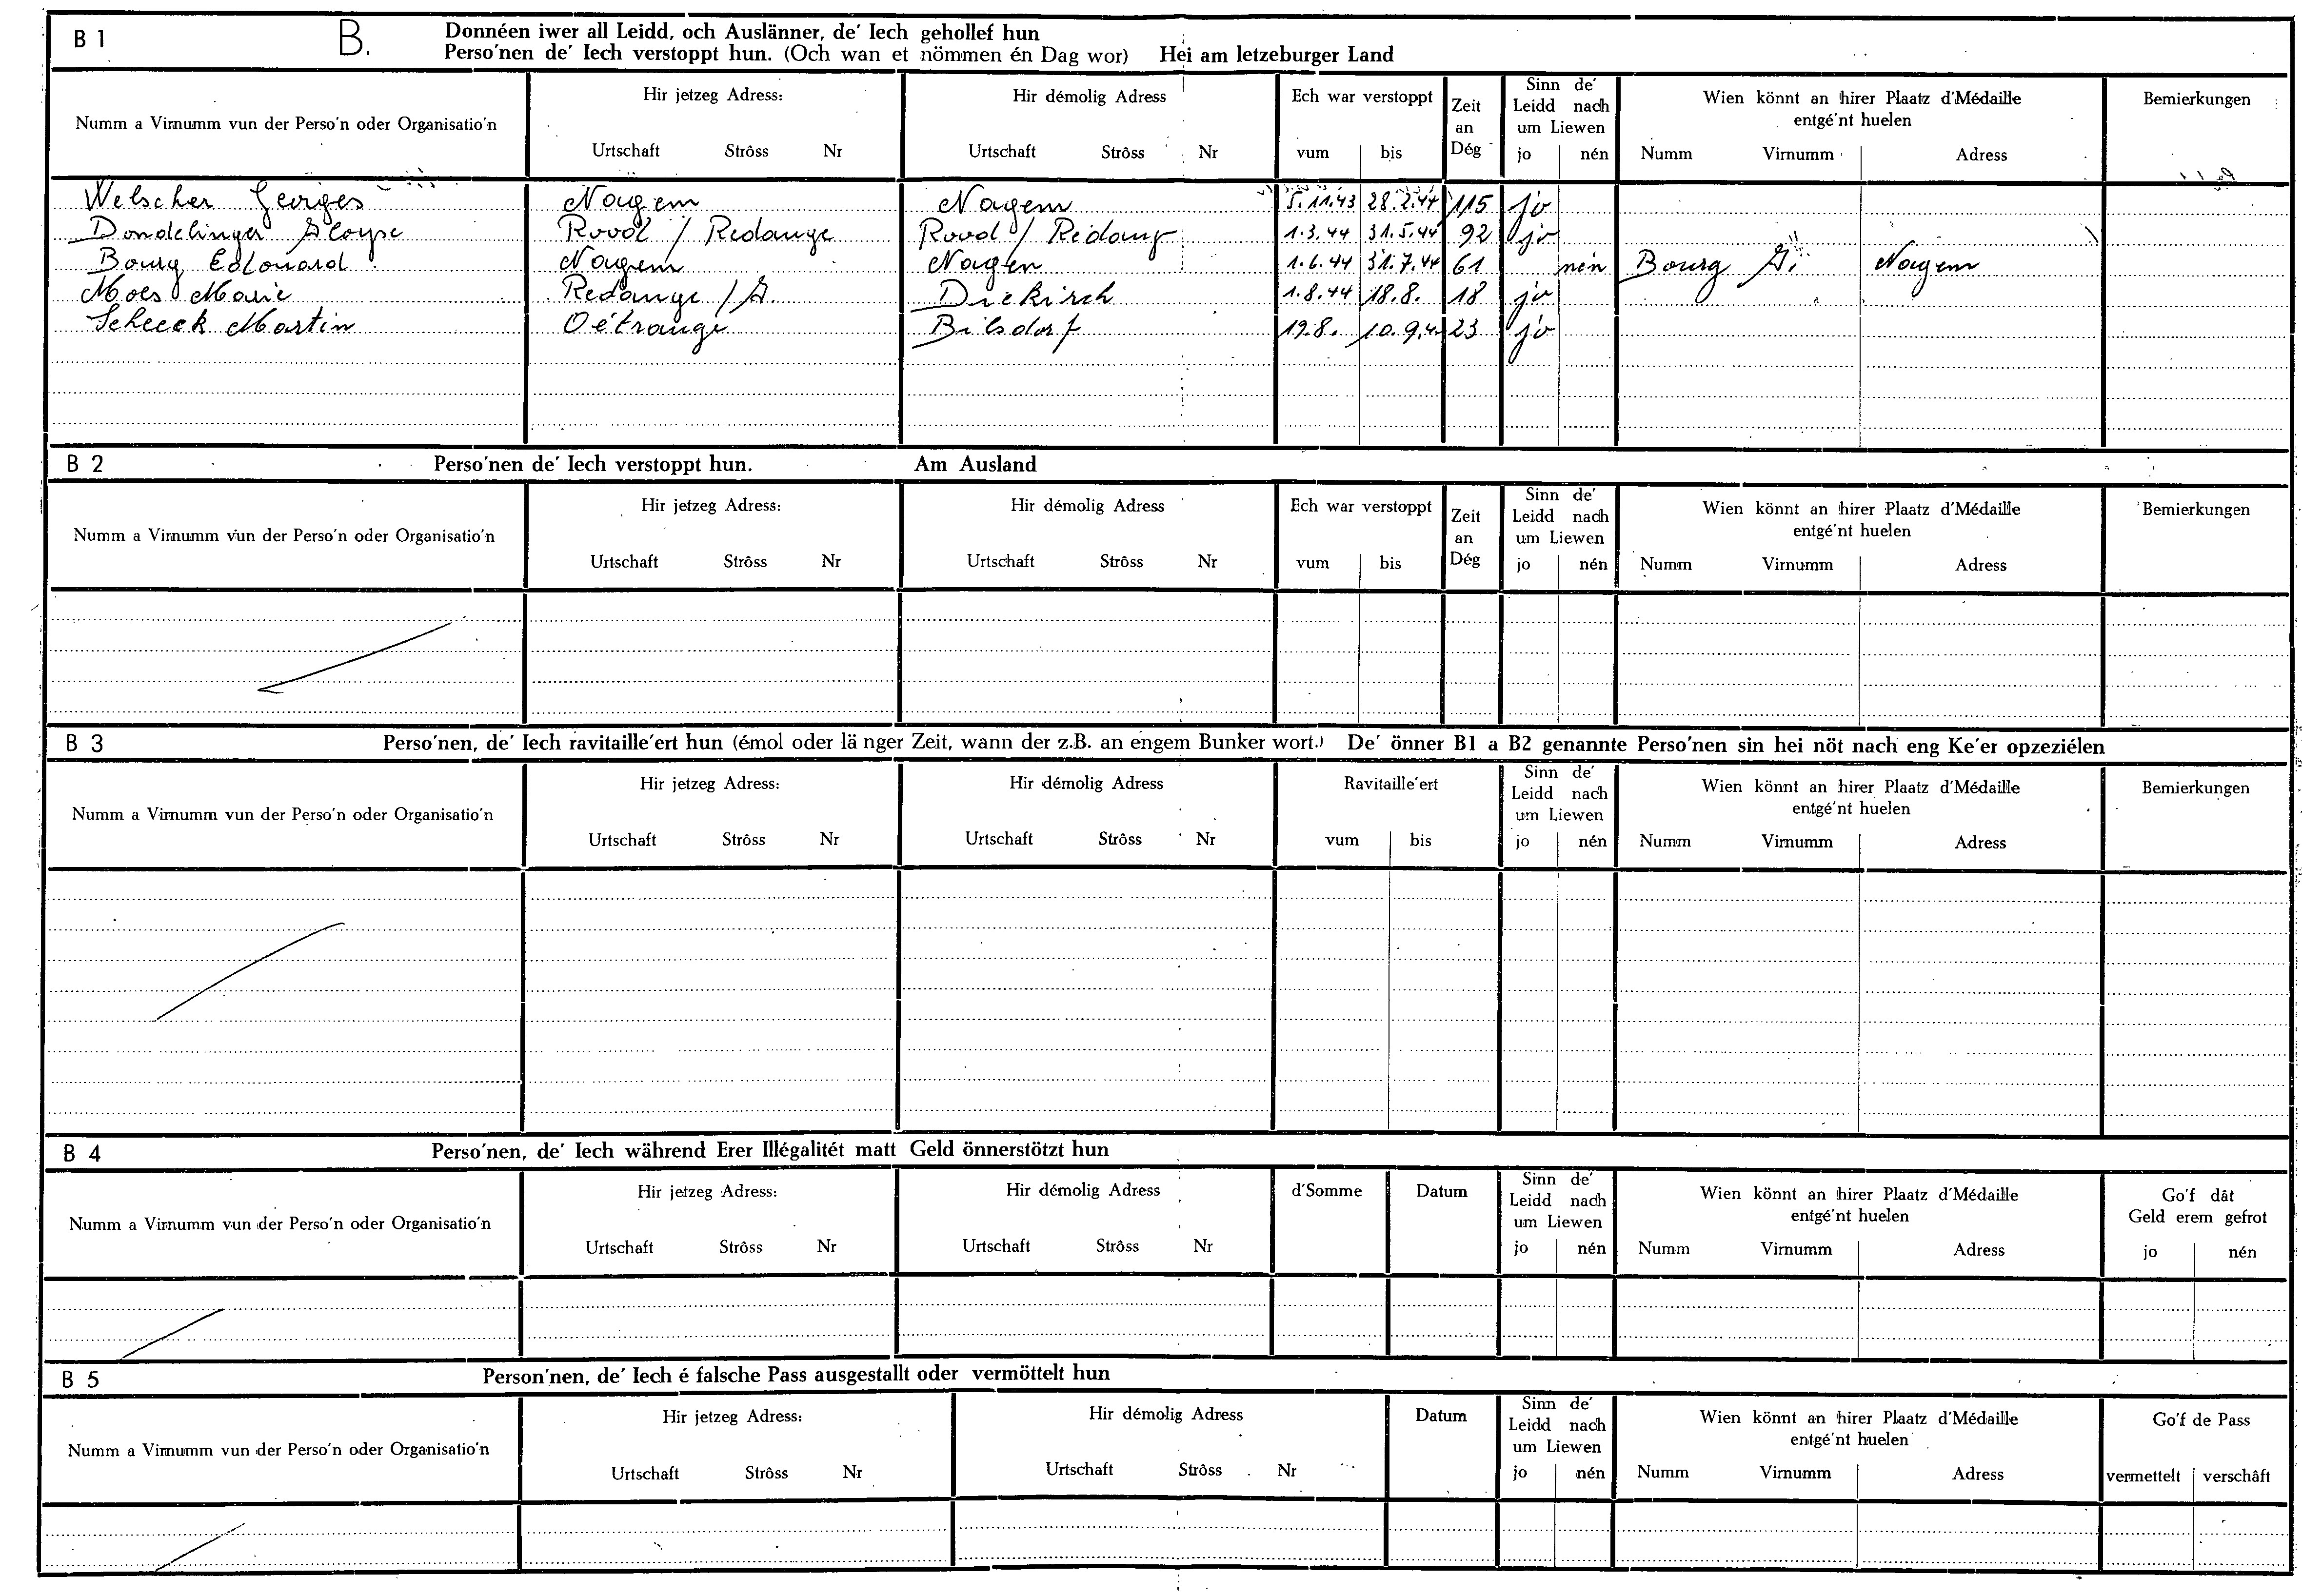 B 1 B. Donnéen iwer all Leidd, och Auslänner, de' Iech gehollef hun
Perso'nen de' Iech verstoppt hun. (Och wan et nömmen én Dag wor) Hei am letzeburger Land
Numm a Virnumm vun der Perso'n oder Organisatio'n
Hir jetzeg Adress:
Urtschaft Strôss Nr
Hir démolig Adress
Urtschaft Strôss Nr
Ech war verstoppt
vum bis
Zeit
an
Dég
Sinn de'
Leidd nach
um Liewen
jo nén
Wien könnt an hirer Plaatz d'Médaille
entgé'nt huelen
Numm Virnumm Adress
Bemierkungen
Welscher Georges Nagem Nagem 5.11.43 28.2.44 115 jo
Dondelinger Aloyse Rood / Redange Rood / Redang 1.3.44 31.5.44 92 jo
Bourg Edouard Nagem Nagen 1.6.44 31.7.44 61 nén Bourg Nagem
Moes Marie Redange /A. Diekirch 1.8.44 18.8. 18 jo
Scheeck Martin Oétrange Bilsdorf 19.8. 10.9.4 23 jo
B 2 Perso'nen de' Iech verstoppt hun. Am Ausland
Numm a Virnumm vun der Perso'n oder Organisatio'n
Hir jetzeg Adress:
Urtschaft Strôss Nr
Hir démolig Adress
Urtschaft Strôss Nr
Ech war verstoppt
vum bis
Zeit
an
Dég
Sinn de'
Leidd nach
um Liewen
jo nén
Wien könnt an hirer Plaatz d'Médaille
entgé'nt huelen
Numm Virnumm Adress
Bemierkungen
B 3 Perso'nen, de' Iech ravitaille'ert hun (émol oder länger Zeit, wann der z.B. an engem Bunker wort.) De' önner B1 a B2 genannte Perso'nen sin hei nöt nach eng Ke'er opzeziélen
Numm a Virnumm vun der Perso'n oder Organisatio'n
Hir jetzeg Adress:
Urtschaft Strôss Nr
Hir démolig Adress
Urtschaft Strôss Nr
Ravitaille'ert
vum bis
Sinn de'
Leidd nach
um Liewen
jo nén
Wien könnt an hirer Plaatz d'Médaille
entgé'nt huelen
Numm Virnumm Adress
Bemierkungen
B 4 Perso'nen, de' Iech während Erer Illégalitét matt Geld önnerstötzt hun
Numm a Virnumm vun der Perso'n oder Organisatio'n
Hir jetzeg Adress:
Urtschaft Strôss Nr
Hir démolig Adress
Urtschaft Strôss Nr
d'Somme
Datum
Sinn de'
Leidd nach
um Liewen
jo nén
Wien könnt an hirer Plaatz d'Médaille
entgé'nt huelen
Numm Virnumm Adress
Go'f dât
Geld erem gefrot
jo nén
B 5 Person'nen, de' Iech é falsche Pass ausgestallt oder vermöttelt hun
Numm a Virnumm vun der Perso'n oder Organisatio'n
Hir jetzeg Adress:
Urtschaft Strôss Nr
Hir démolig Adress
Urtschaft Strôss Nr
Datum
Sinn de'
Leidd nach
um Liewen
jo nén
Wien könnt an hirer Plaatz d'Médaille
entgé'nt huelen
Numm Virnumm Adress
Go'f de Pass
vermettelt verschâft